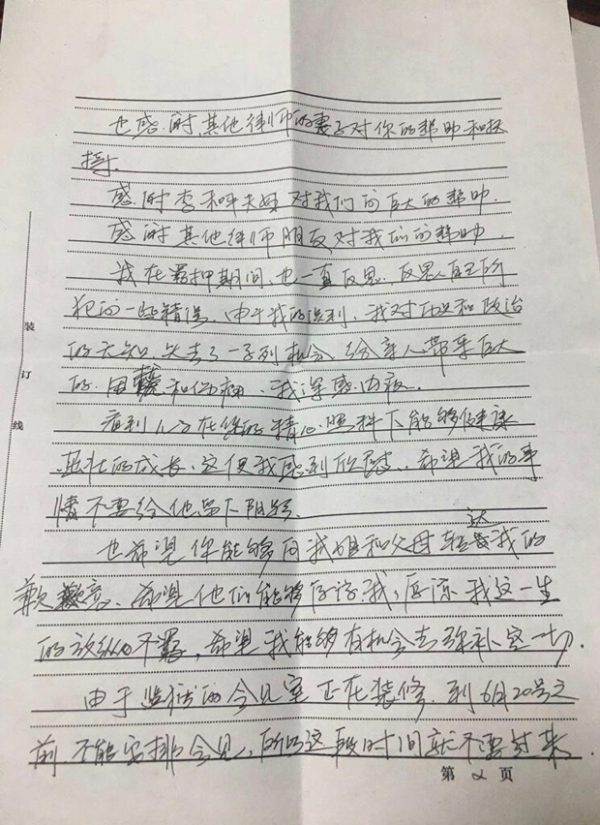 也感谢其他律师的妻子对你的帮助和扶
持.
感谢李和平夫妇对我们的巨大的帮助.
感谢其他律师朋友对我们的帮助.
我在羁押期间,也一直反思,反思自己所
犯的一些错误.由于我的,我对和政治
的无知.失去了一系列机会,给亲人带来巨大
的困扰和伤痛,我深感内疚.
看到在你的精心照料下能够健康
茁壮的成长,这使我感到欣慰.希望我的事
情不要给他留下阴影.
也希望你能够向我姐和父母转达我的
歉意、希望他们能够原谅我,原谅我这一生
的放纵不羁,希望我能够有机会去弥补这一切.
由于监狱的会见室正在装修.到6月20号之
前.不能安排会见,所以这段时间就不要过来.
第 2 页
装
订
线